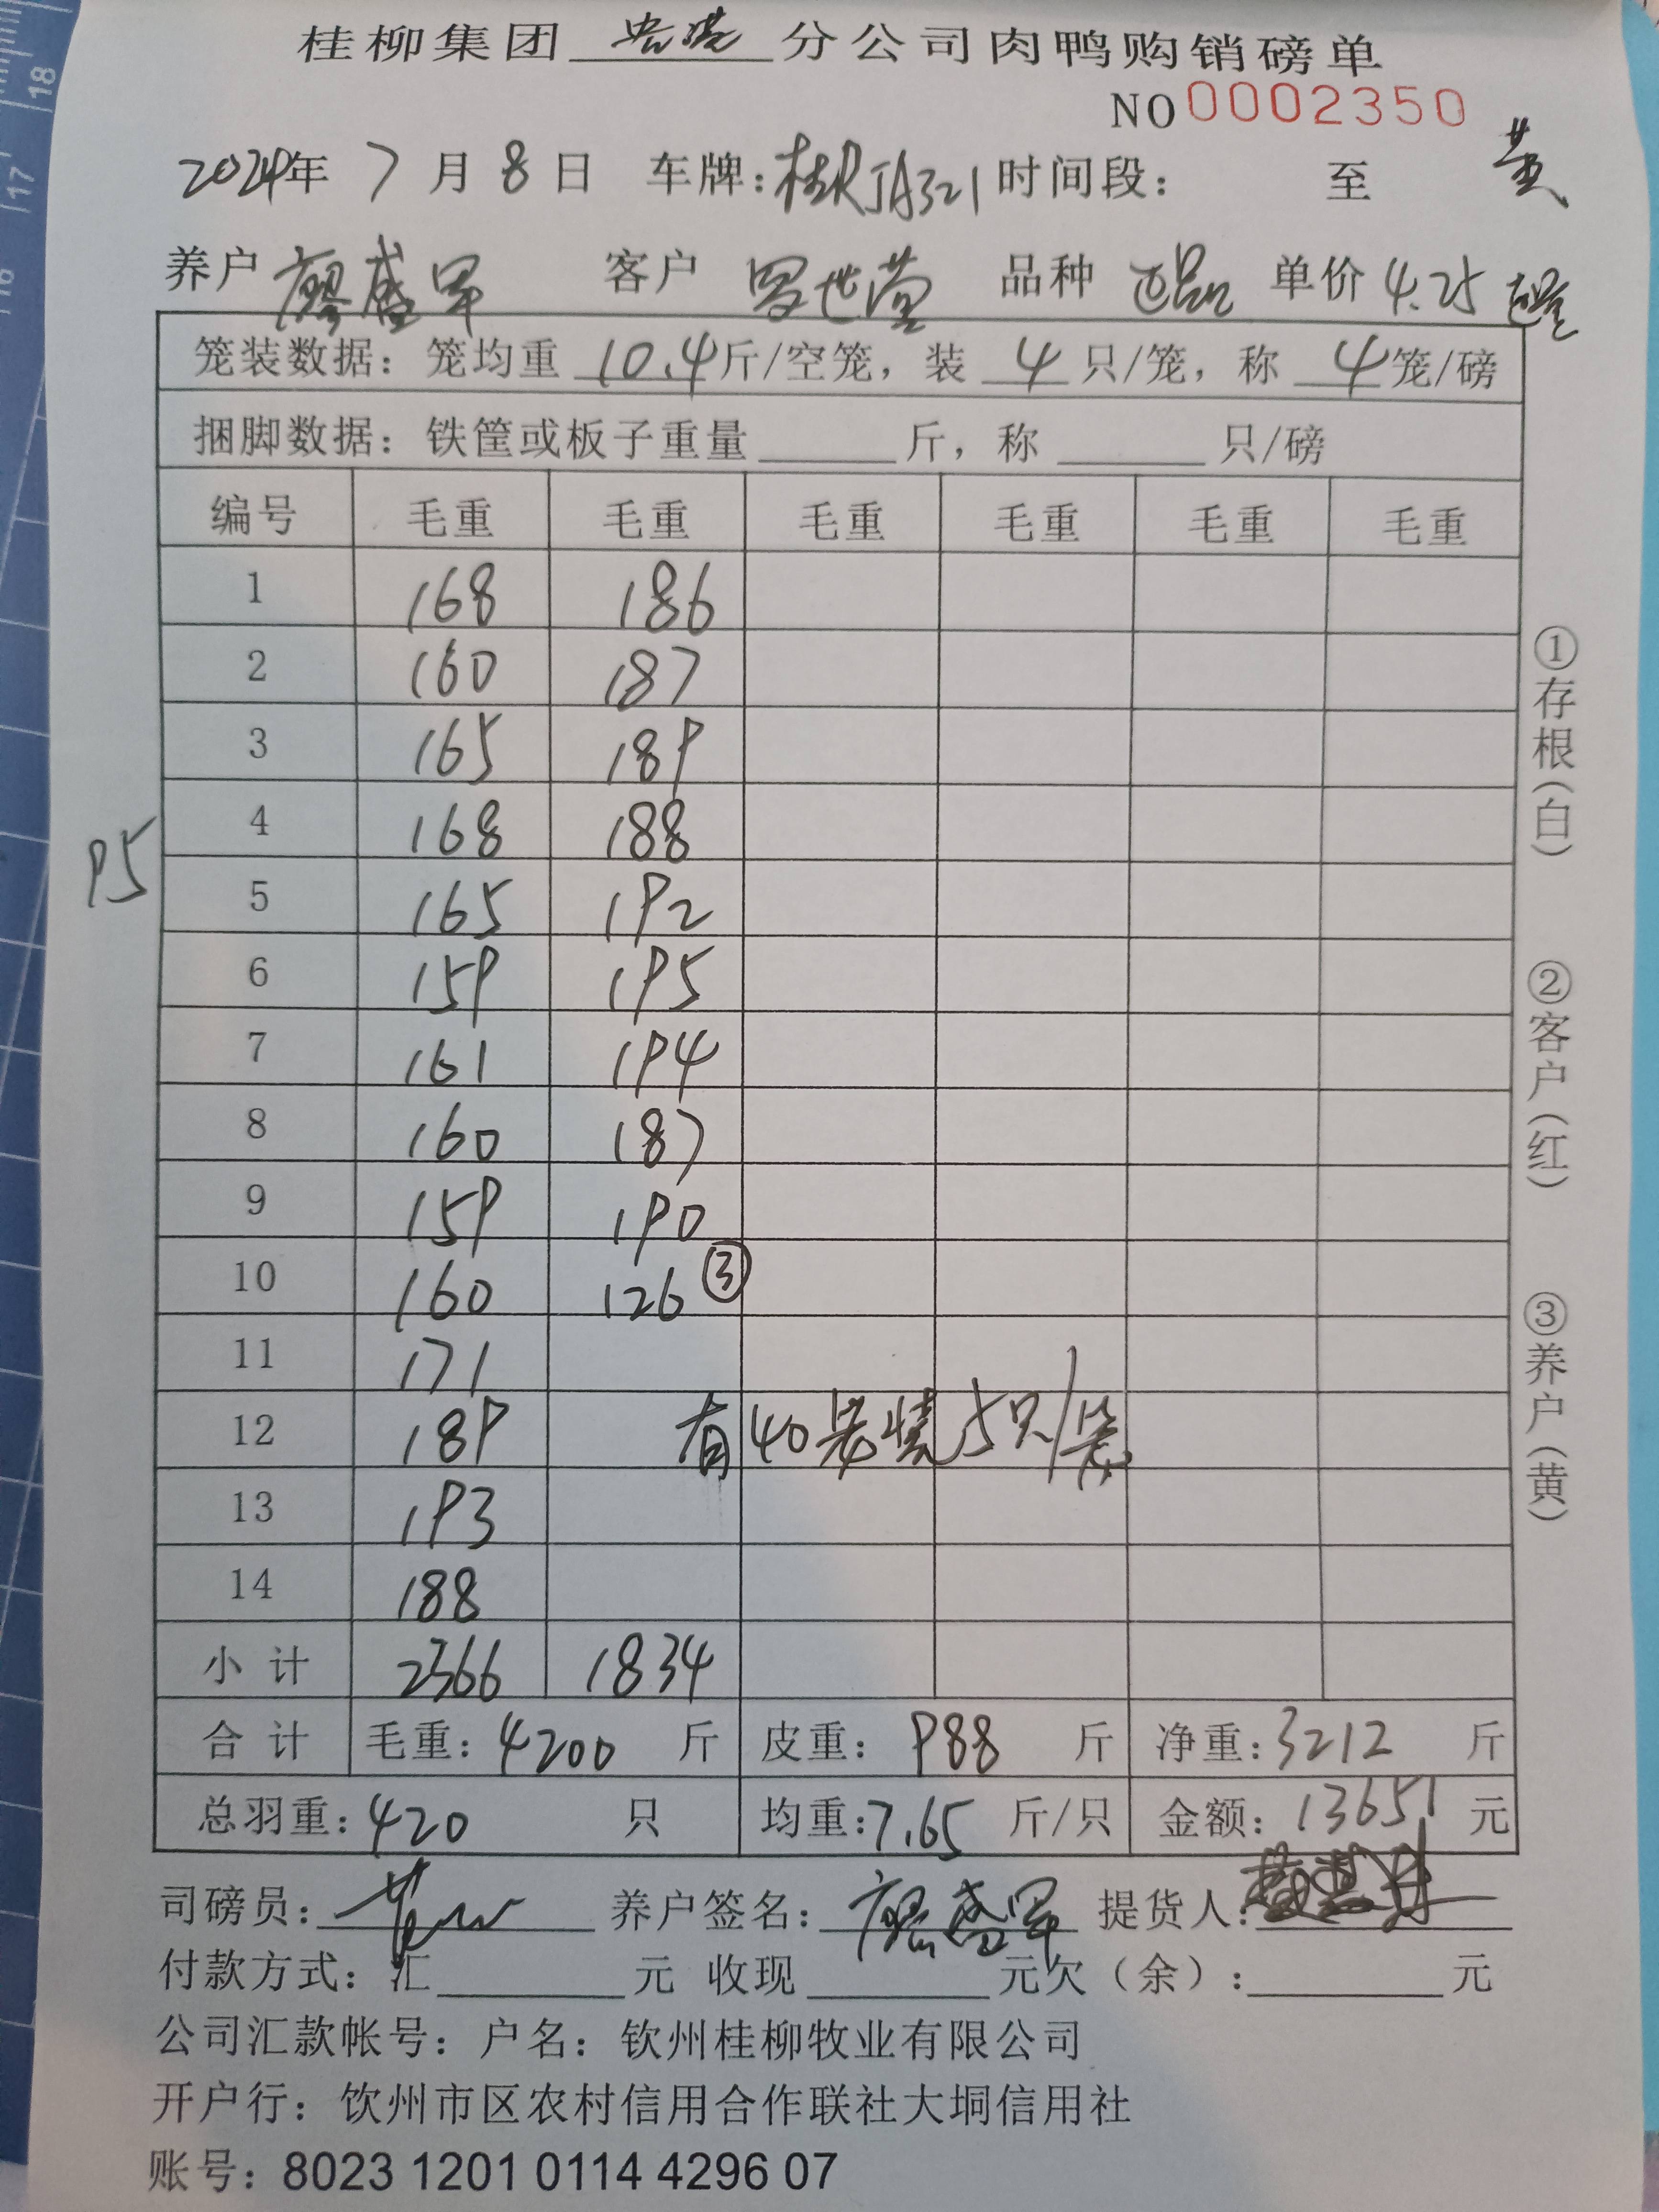 桂柳集团 分公司肉鸭购销磅单
NO 0002350
2024年 7 月 8 日 车牌:桂RJA321 时间段: 至 黄
养户 廖盛军 客户 罗世营 品种 单价 4.25
笼装数据:笼均重 10.4 斤/空笼,装 4 只/笼,称 4 笼/磅
捆脚数据:铁筐或板子重量 斤,称 只/磅
编号 毛重 毛重 毛重 毛重 毛重 毛重
1 168 186
2 160 187
3 165 189
4 168 188
5 165 192
6 159 195
7 161 194
8 160 187
9 159 190
10 160 126 ③
11 171
12 189 有40笼装5只/笼
13 193
14 188
小计 2366 1834
合计 毛重:4200 斤 皮重:988 斤 净重:3212 斤
总羽重:420 只 均重:7.65 斤/只 金额:13651 元
司磅员: 养户签名:廖盛军 提货人:
付款方式:汇 元 收现 元欠(余): 元
公司汇款帐号:户名:钦州桂柳牧业有限公司
开户行:钦州市区农村信用合作联社大垌信用社
账号:8023 1201 0114 4296 07
95
①存根(白)
②客户(红)
③养户(黄)
18
17
16